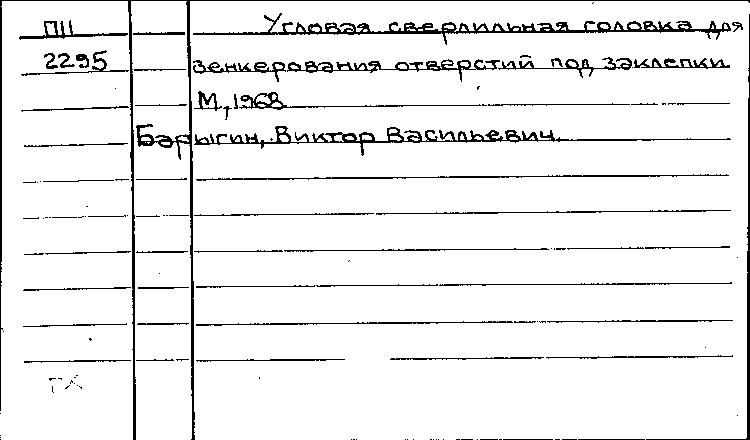 П11 Угловая сверлильная головка для
2295 зенкерования отверстий под заклепки
М, 1968
Барыгин, Виктор Васильевич.
ГК